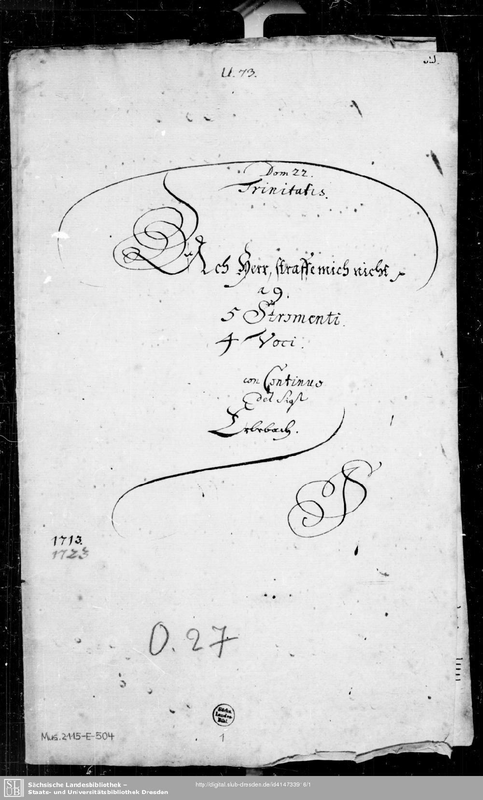 U. 73.
Dom 22.
Trinitatis.
Ach Herr, straffe mich nicht
a 9.
5 Stromenti.
4 Voci.
con Continuo
del Sigr
Erlebach.
1713.
1723
O. 27
Sächs.
Landes
Bibl.
Mus. 2115-E-504
1
SLUB
Sächsische Landesbibliothek –
Staats- und Universitätsbibliothek Dresden
http://digital.slub-dresden.de/id4147339